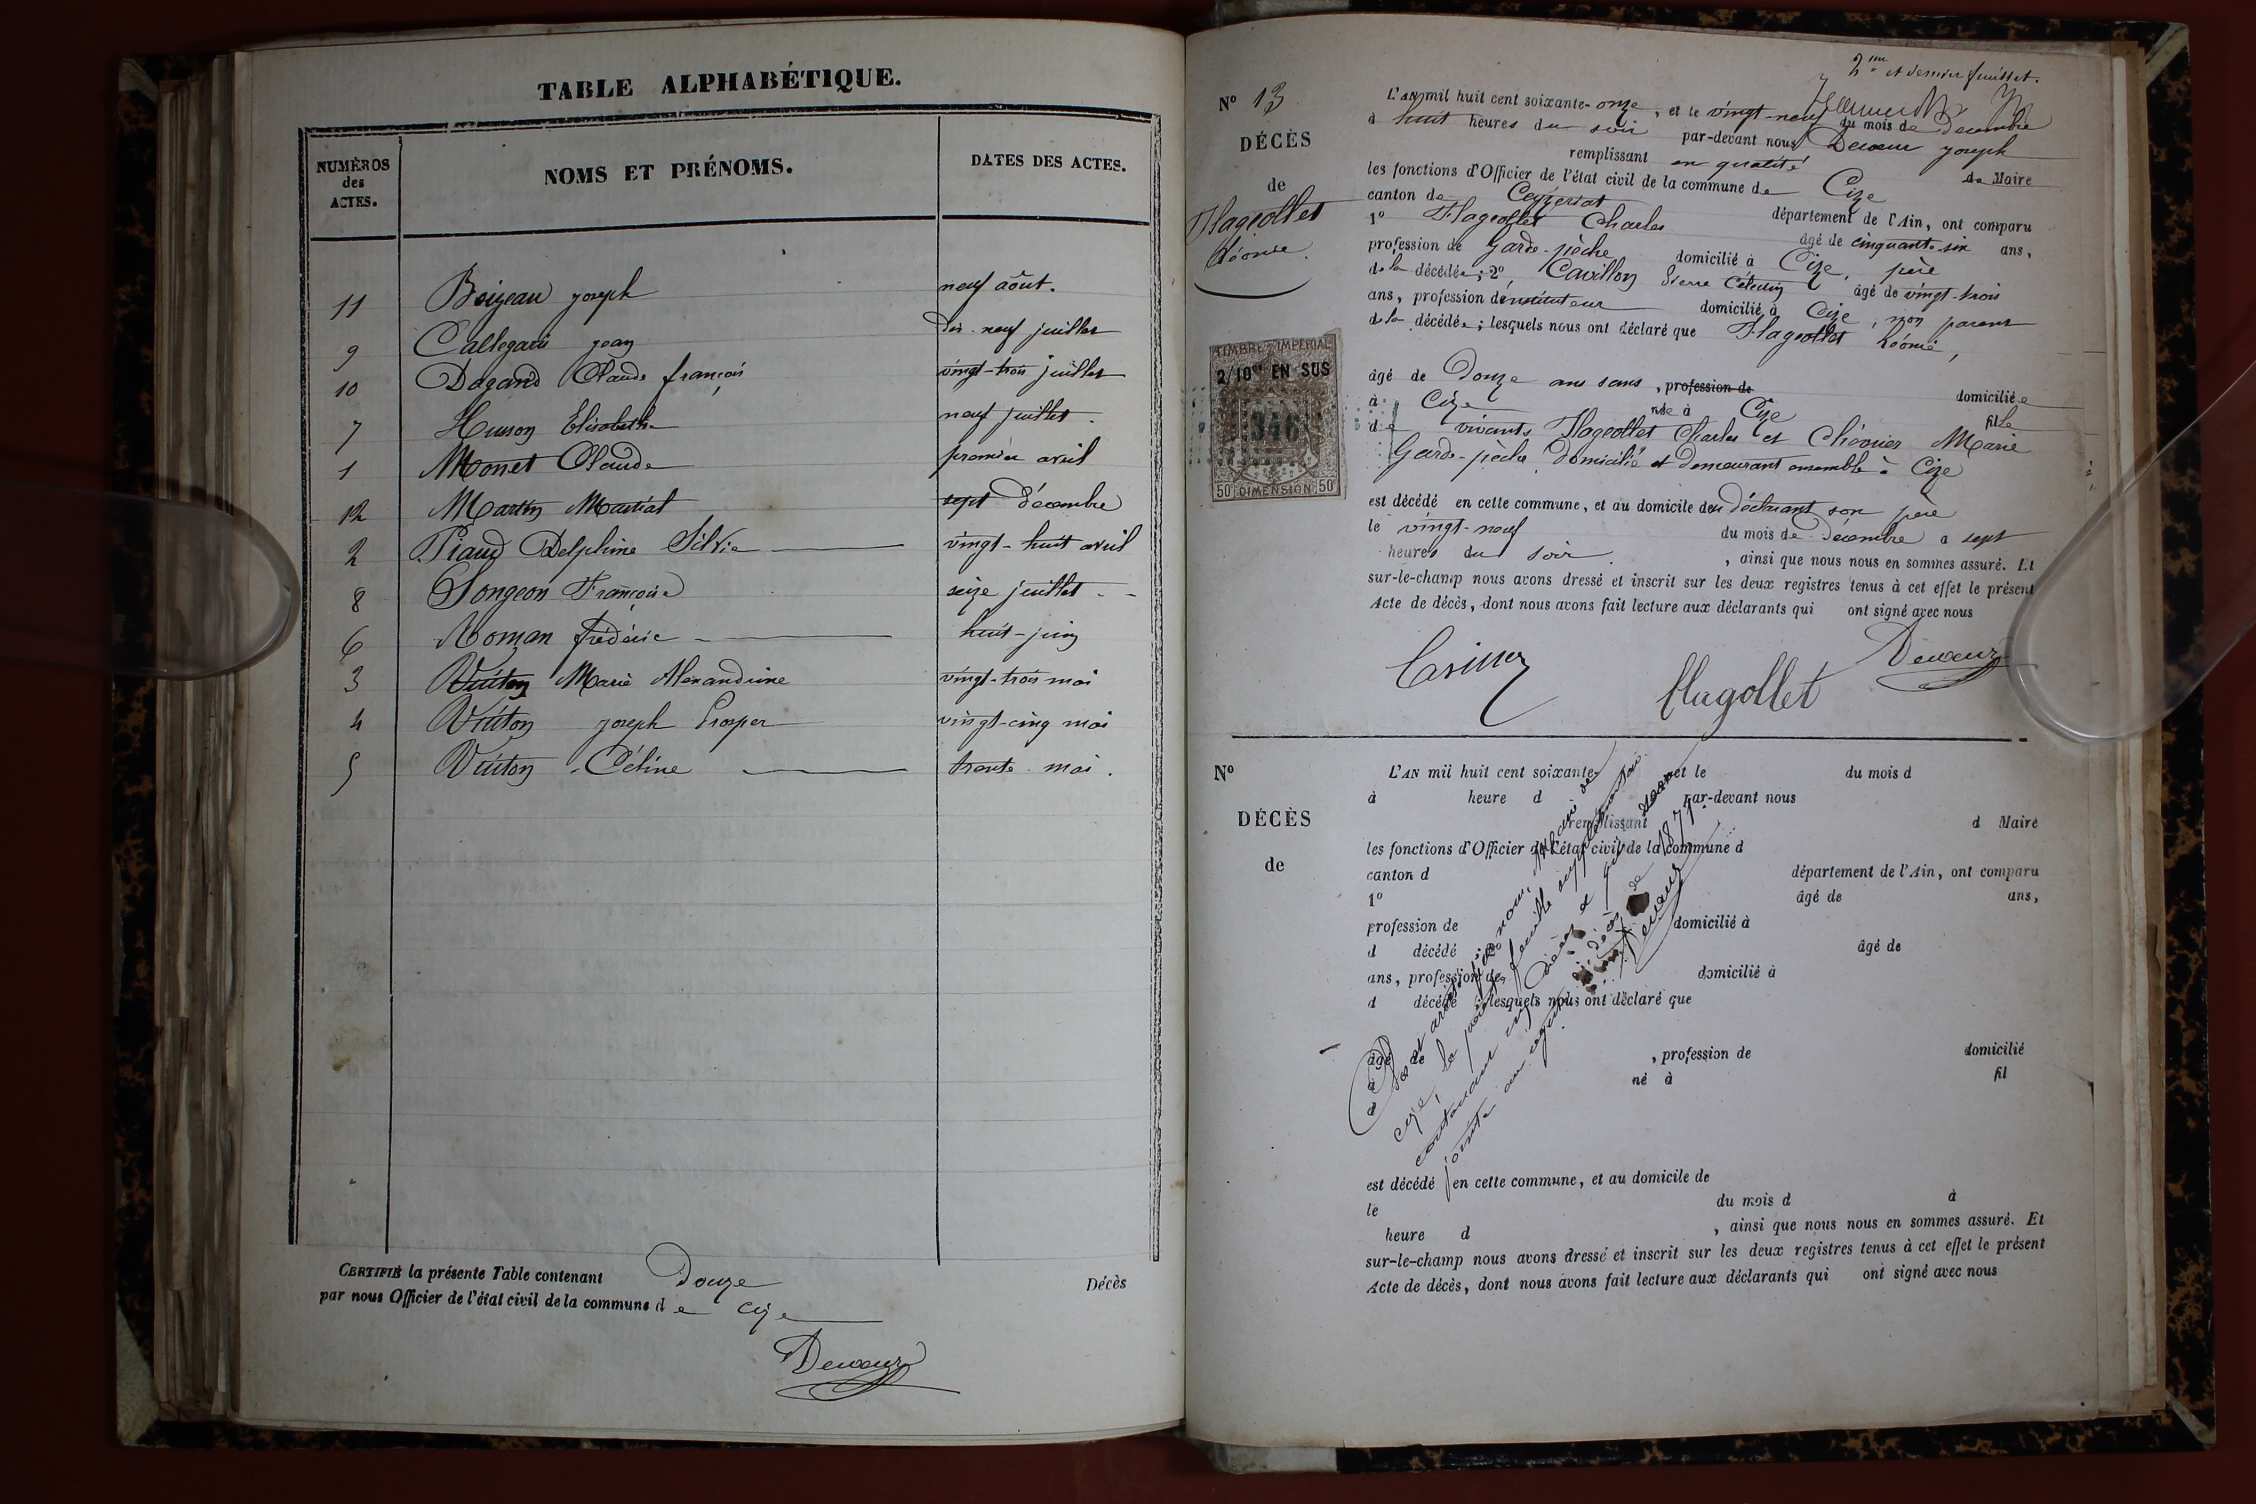 TABLE ALPHABÉTIQUE.
NUMÉROS des ACTES. NOMS ET PRÉNOMS. DATES DES ACTES.
11 Boizeau joseph neuf aôut.
9 Callegari jean dix-neuf juillet
10 Dagand Claude françois vingt-trois juillet
7 Husson Elisabeth neuf juillet
1 Monet Claude premier avril
12 Martin Martial sept Décembre
2 Piaud Delphine Silvie vingt-huit avril
8 Songeon Françoise seize juillet
6 Roman frédéric huit-juin
3 Vuiton Marie Alexandrine vingt-trois mai
4 Vuiton joseph Prosper vingt-cinq mai
5 Vuiton Céline trente mai.
CERTIFIÉ la présente Table contenant Douze Décès
par nous Officier de l'état civil de la commune de Cize
Devoeur
2me et dernier feuillet.
N° 13
DÉCÈS
de
Flageollet
Léonie.
TIMBRE IMPÉRIAL
2/10es EN SUS
346
50 DIMENSION 50
L'AN mil huit cent soixante-onze, et le vingt-neuf du mois de Décembre
à huit heures du soir par-devant nous Devoeur joseph
remplissant en qualité de Maire
les fonctions d'Officier de l'état civil de la commune de Cize
canton de Ceyzeriat département de l'Ain, ont comparu
1° Flageollet Charles âgé de cinquante-six ans,
profession de Garde-pèche domicilié à Cize, père
de la décédée; 2° Cavillon Pierre Célestin âgé de vingt-trois
ans, profession d'instituteur domicilié à Cize, non parent
de la décédée; lesquels nous ont déclaré que Flageollet Léonie,
âgé de Douze ans sans, profession de domiciliée
à Cize née à Cize fille
de vivants Flageollet Charles et Chévrier Marie
Garde-pèche, domicilié et demeurant ensemble à Cize
est décédé en cette commune, et au domicile du déclarant son père
le vingt-neuf du mois de Décembre à sept
heures du soir, ainsi que nous nous en sommes assuré. Et
sur-le-champ nous avons dressé et inscrit sur les deux registres tenus à cet effet le présent
Acte de décès, dont nous avons fait lecture aux déclarants qui ont signé avec nous
flagollet Devoeur
N°
DÉCÈS
de
L'AN mil huit cent soixante- et le du mois d
à heure d par-devant nous
remplissant d Maire
les fonctions d'Officier de l'état civil de la commune d
canton d département de l'Ain, ont comparu
1° âgé de ans,
profession de domicilié à
d décédé âgé de
ans, profession de domicilié à
d décédé ; lesquels nous ont déclaré que
âgé de , profession de domicilié
à né à fil
d
est décédé en cette commune, et au domicile de
le du mois d à
heure d , ainsi que nous nous en sommes assuré. Et
sur-le-champ nous avons dressé et inscrit sur les deux registres tenus à cet effet le présent
Acte de décès, dont nous avons fait lecture aux déclarants qui ont signé avec nous
Clos et arrêté par nous, Maire de
Cize, la présente feuille supplémentaire
contenant un Décès et qui
jointe au registre de décès de 1871.
Devoeur